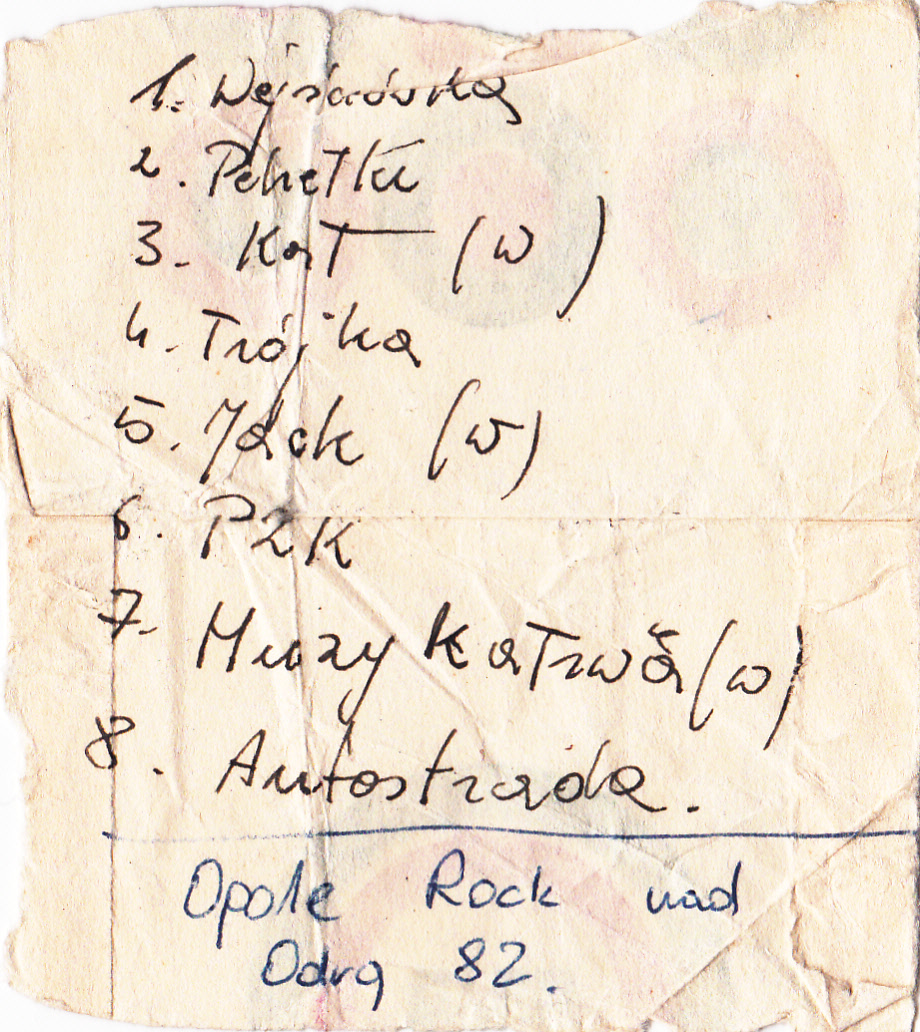 1. Wejściówka
2. Pchełki
3. Kat (w)
4. Trójka
5. Jack (w)
6. PZK
7. Muzyka (w)
8. Autostrada.
Opole Rock nad
Odrą 82.